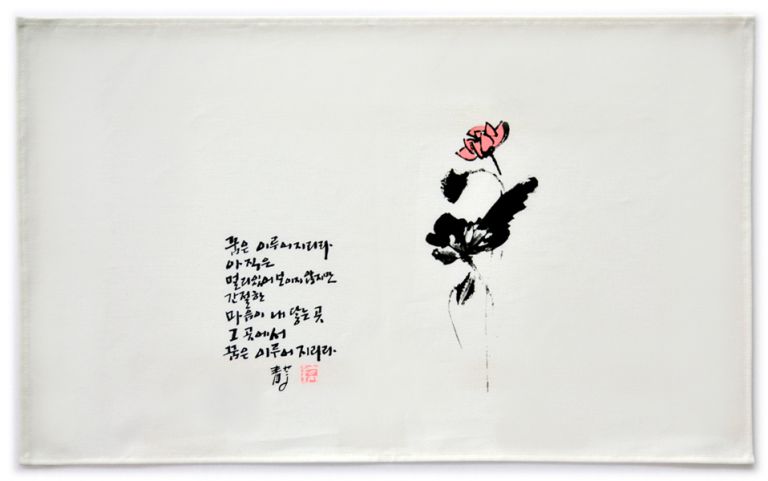 꿈은 이루어지리라.
아직은
멀리있어 보이지 않지만
간절한
마음이 내 닿는 곳
그 곳에서
꿈은 이루어 지리라.